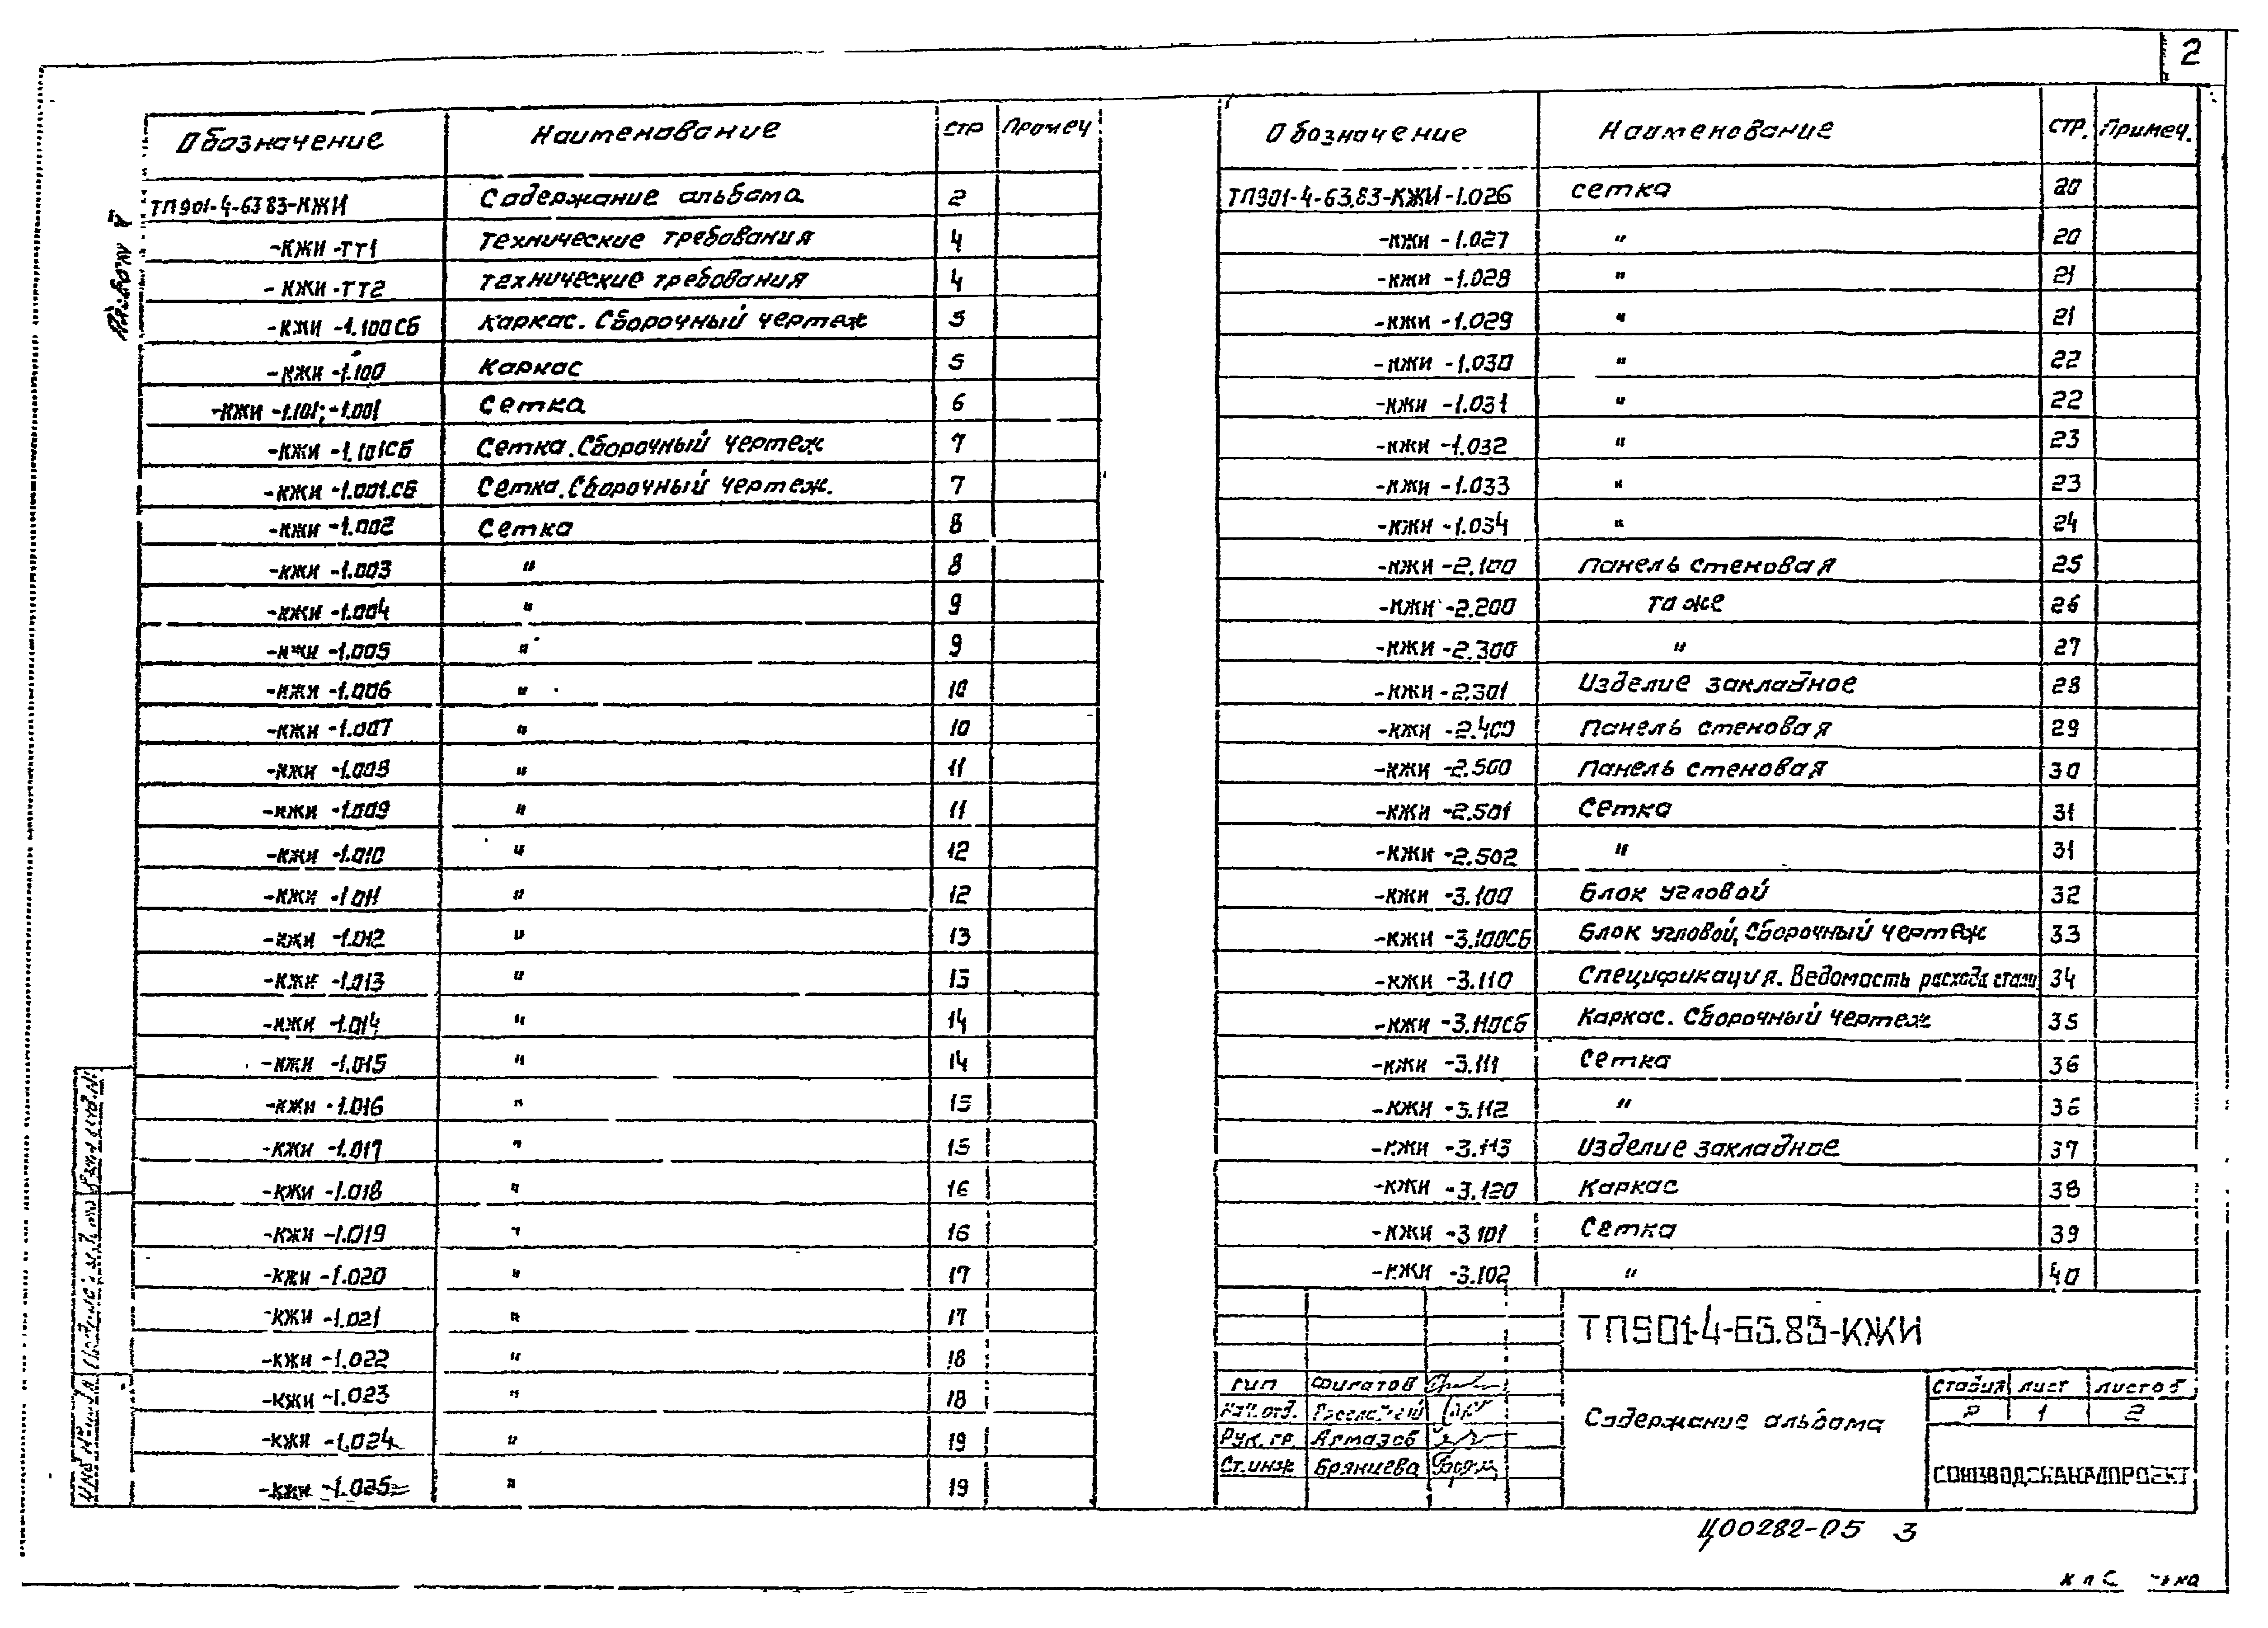 2
Обозначение Наименование Стр Примеч
ТП901-4-6383-КЖИ Содержание альбома 2
-КЖИ-ТТ1 Технические требования 4
-КЖИ-ТТ2 Технические требования 4
-КЖИ-1.100СБ Каркас. Сборочный чертеж 5
-КЖИ-1.100 Каркас 5
-КЖИ-1.101; -1.001 Сетка 6
-КЖИ-1.101СБ Сетка. Сборочный чертеж 7
-КЖИ-1.001.СБ Сетка. Сборочный чертеж. 7
-КЖИ-1.002 Сетка 8
-КЖИ-1.003 " 8
-КЖИ-1.004 " 9
-КЖИ-1.005 " 9
-КЖИ-1.006 " 10
-КЖИ-1.007 " 10
-КЖИ-1.008 " 11
-КЖИ-1.009 " 11
-КЖИ-1.010 " 12
-КЖИ-1 011 " 12
-КЖИ-1.012 " 13
-КЖИ-1.013 " 13
-КЖИ-1.014 " 14
-КЖИ-1.015 " 14
-КЖИ-1.016 " 15
-КЖИ-1.017 " 15
-КЖИ-1.018 " 16
-КЖИ-1.019 " 16
-КЖИ-1.020 " 17
-КЖИ-1.021 " 17
-КЖИ-1.022 " 18
-КЖИ-1.023 " 18
-КЖИ-1.024 " 19
-КЖИ-1.025 " 19
Обозначение Наименование Стр. Примеч.
ТП901-4-63.83-КЖИ-1.026 сетка 20
-КЖИ-1.027 " 20
-КЖИ-1.028 " 21
-КЖИ-1.029 " 21
-КЖИ-1.030 " 22
-КЖИ-1.031 " 22
-КЖИ-1.032 " 23
-КЖИ-1.033 " 23
-КЖИ-1.034 " 24
-КЖИ-2.100 Панель стеновая 25
-КЖИ-2.200 то же 26
-КЖИ-2.300 " 27
-КЖИ-2.301 Изделие закладное 28
-КЖИ-2.400 Панель стеновая 29
-КЖИ-2.500 Панель стеновая 30
-КЖИ-2.501 Сетка 31
-КЖИ-2.502 " 31
-КЖИ-3.100 Блок угловой 32
-КЖИ-3.100СБ Блок угловой, Сборочный чертеж 33
-КЖИ-3.110 Спецификация. Ведомость расхода стали 34
-КЖИ-3.110СБ Каркас. Сборочный чертеж 35
-КЖИ-3.111 Сетка 36
-КЖИ-3.112 " 36
-КЖИ-3.113 Изделие закладное 37
-КЖИ-3.120 Каркас 38
-КЖИ-3 101 Сетка 39
-КЖИ-3.102 " 40
ТП901-4-63.83-КЖИ
ГИП Филатов
Нач.отд.
Рук. гр. Алмазов
Ст.инж Брянцева
Содержание альбома
Стадия лист листов
Р 1 2
СОЮЗВОДОКАНАЛПРОЕКТ
Ц00282-05 3